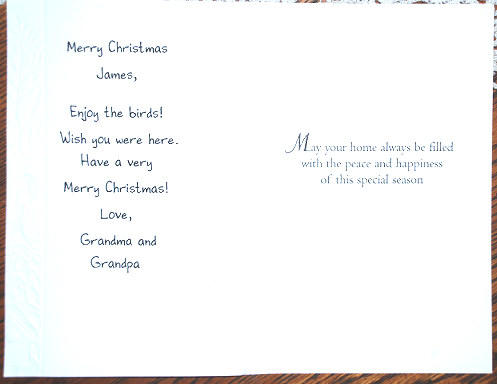 Merry Christmas
James,
Enjoy the birds!
Wish you were here.
Have a very
Merry Christmas!
Love,
Grandma and
Grandpa
May your home always be filled
with the peace and happiness
of this special season